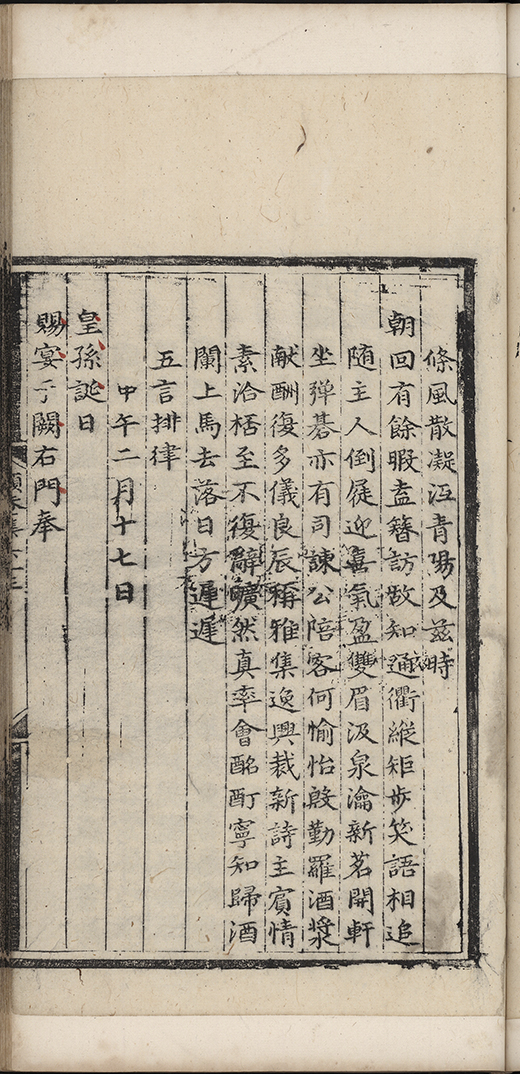 條風散凝冱青陽及茲時
朝回有餘暇盍簪訪故知通衢縱矩步笑語相追
随主人倒屣迎喜氣盈雙眉汲泉瀹新茗開軒
坐弹碁亦有司諫公陪客何愉怡殷勤羅酒漿
献酬復多儀良辰稱雅集逸興裁新詩主賓情
素洽栝至不復辭曠然真率會酩酊寧知歸酒
闌上馬去落日方遲遲
五言排律
甲午二月十七日
皇孫誕日
賜宴于闕右門奉